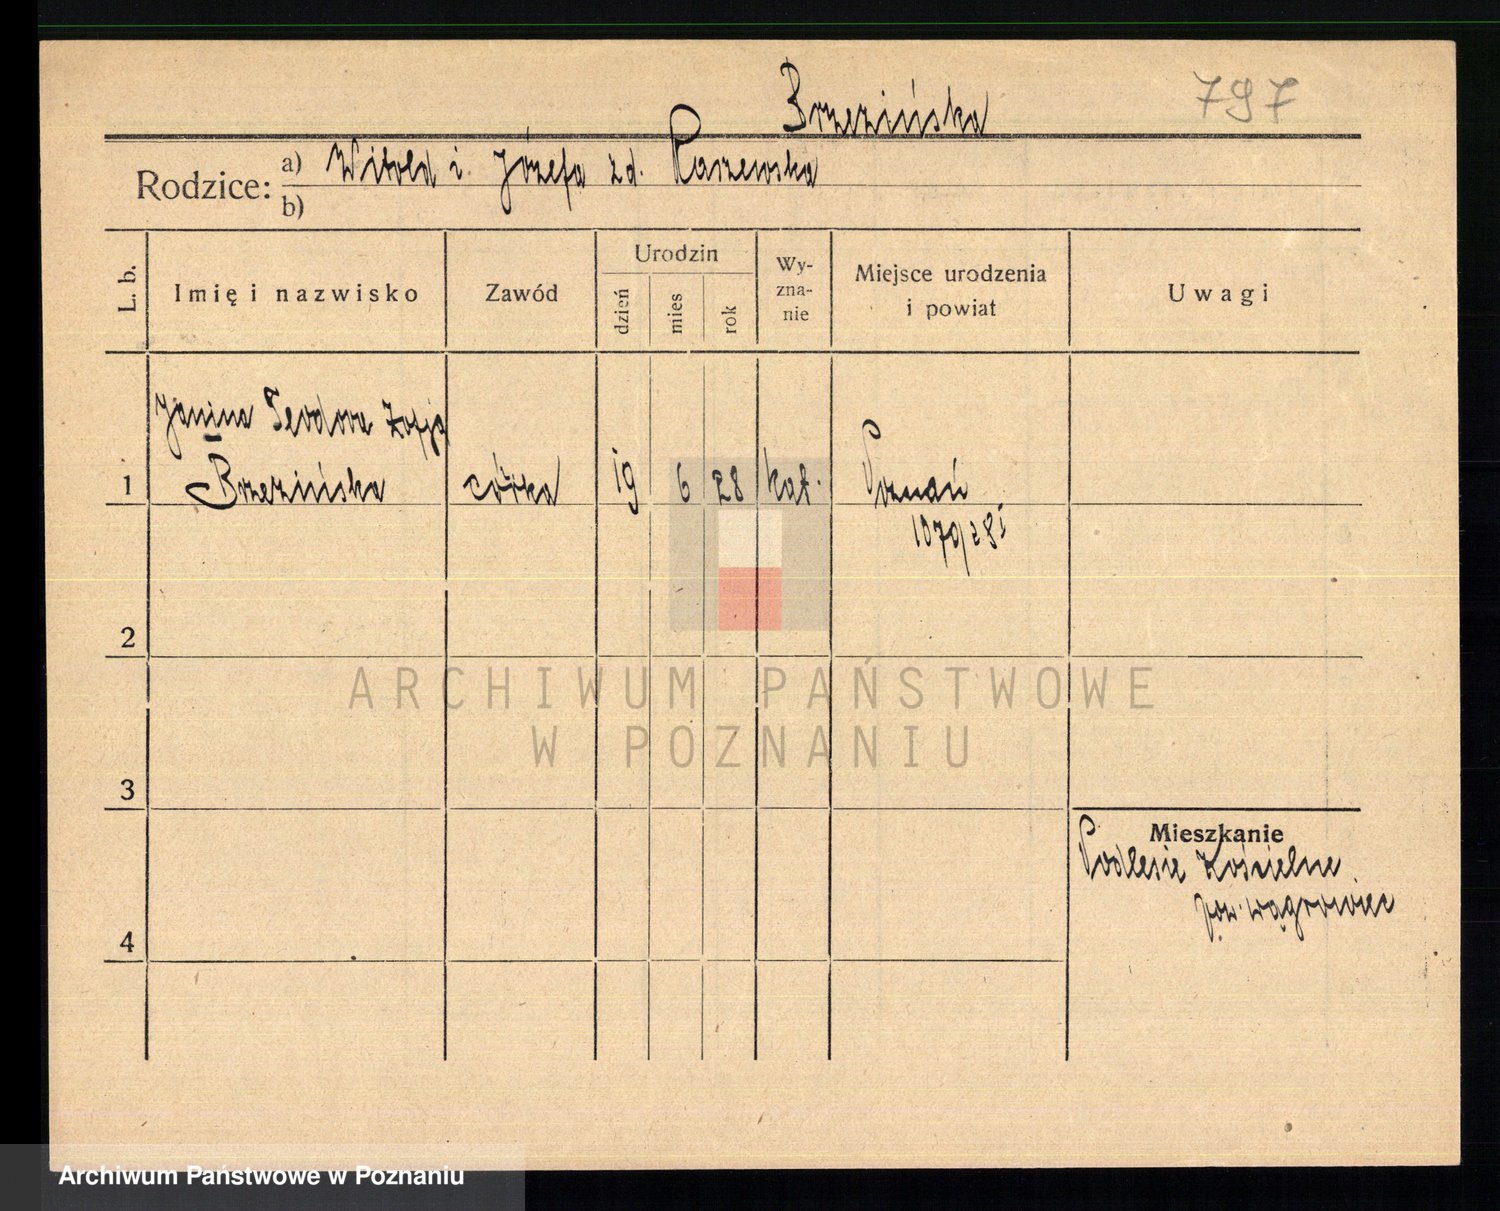 Brzezińska
797
Rodzice: a) Witold i Józefa zd. Raszewska
b)
L. b.
Imię i nazwisko
Zawód
Urodzin
dzień
mies
rok
Wy-
zna-
nie
Miejsce urodzenia
i powiat
Uwagi
Janina Teodora Zofja
1 Brzezińska córka 19 6 28 kat. Poznań
2
3
4
Mieszkanie
Podlesie Kościelne
pow. Wągrowiec
ARCHIWUM PAŃSTWOWE
W POZNANIU
Archiwum Państwowe w Poznaniu